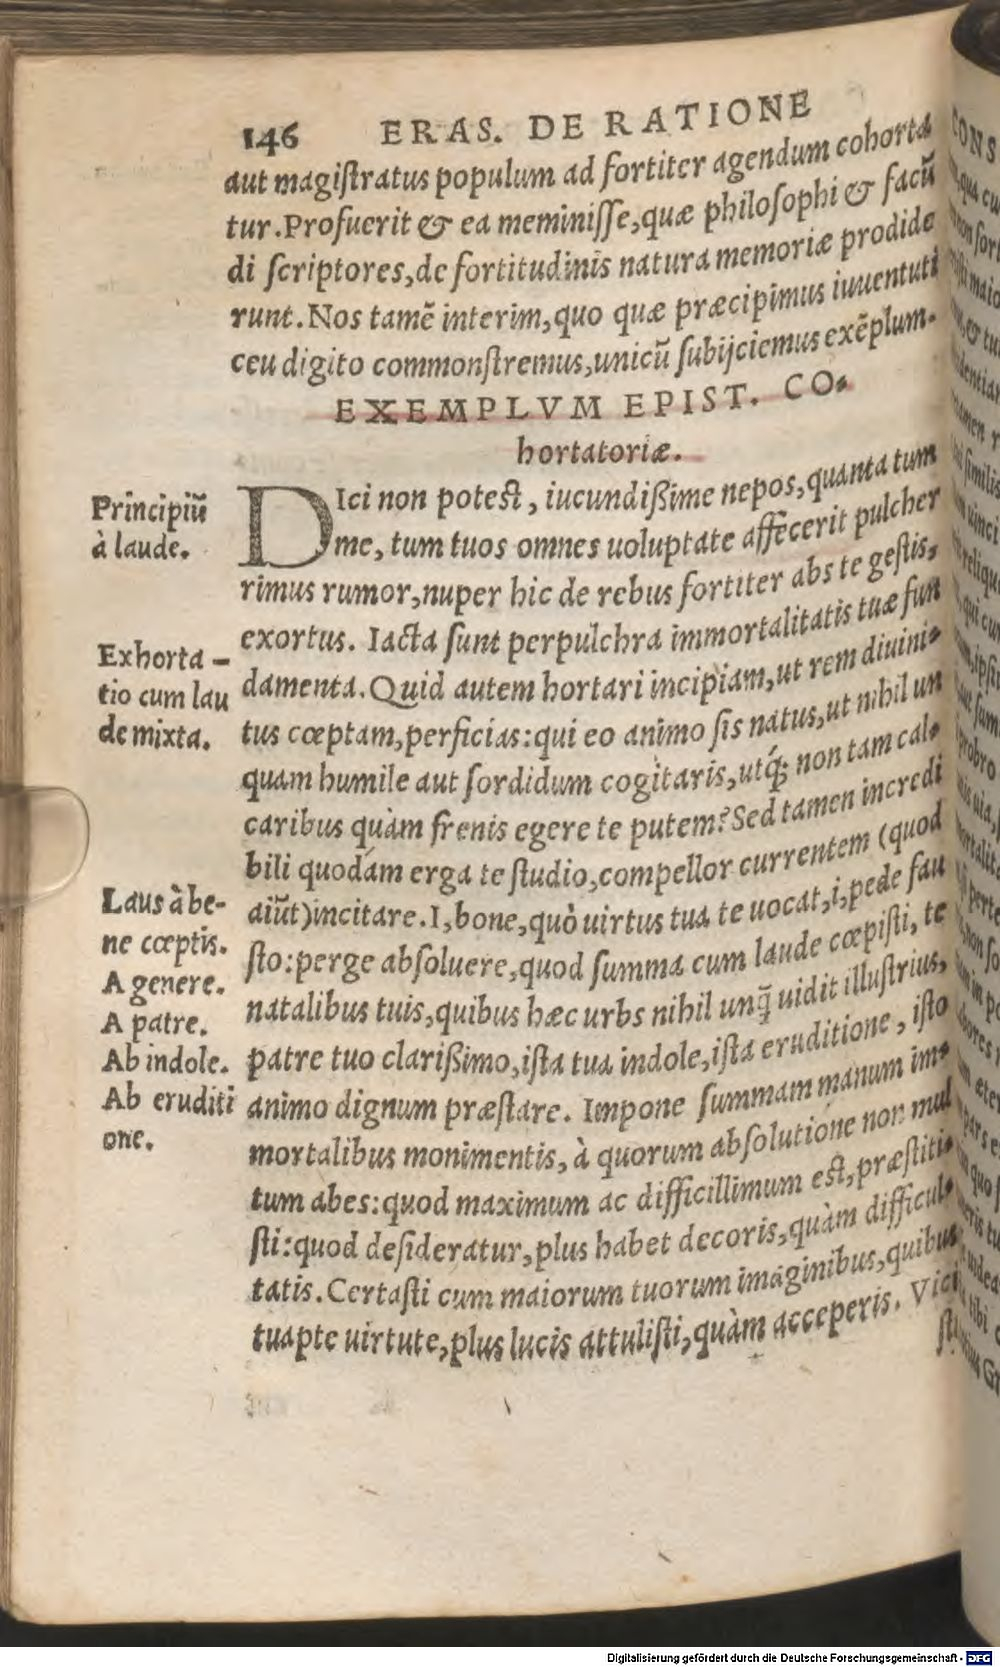 146 ERAS. DE RATIONE
aut magiſtratus populum ad fortiter agendum cohorta
tur. Profuerit & ea meminiſſe, quæ philoſophi & facū
di ſcriptores, de fortitudinis natura memoriæ prodide
runt. Nos tamē interim, quo quæ præcipimus iuuentuti
ceu digito commonſtremus, unicū ſubijciemus exēplum.
EXEMPLVM EPIST. CO-
hortatoriæ.
Principiū
à laude.
DIci non poteſt, iucundißime nepos, quanta tum
me, tum tuos omnes uoluptate affecerit pulcher
rimus rumor, nuper hic de rebus fortiter abs te geſtis,
exortus. Iacta ſunt perpulchra immortalitatis tuæ fun
Exhorta-
tio cum lau
de mixta.
damenta. Quid autem hortari incipiam, ut rem diuini-
tus cœptam, perficias: qui eo animo ſis natus, ut nihil un
quam humile aut ſordidum cogitaris, utq́; non tam cal-
caribus quàm frenis egere te putem? Sed tamen incredi
bili quodam erga te ſtudio, compellor currentem (quod
Laus à be-
ne cœptis.
A genere.
A patre.
Ab indole.
Ab eruditi
one.
aiūt) incitare. I, bone, quò uirtus tua te uocat, i, pede fau
ſto: perge abſoluere, quod ſumma cum laude cœpiſti, te
natalibus tuis, quibus hæc urbs nihil unq̃ uidit illuſtrius,
patre tuo clarißimo, iſta tua indole, iſta eruditione, iſto
animo dignum præſtare. Impone ſummam manum im-
mortalibus monimentis, à quorum abſolutione non mul
tum abes: quod maximum ac difficillimum eſt, præſtiti-
ſti: quod deſideratur, plus habet decoris, quàm difficul-
tatis. Certaſti cum maiorum tuorum imaginibus, quibus
tuapte uirtute, plus lucis attuliſti, quàm acceperis. Vici
ſti
Digitalisierung gefördert durch die Deutsche Forschungsgemeinschaft - DFG